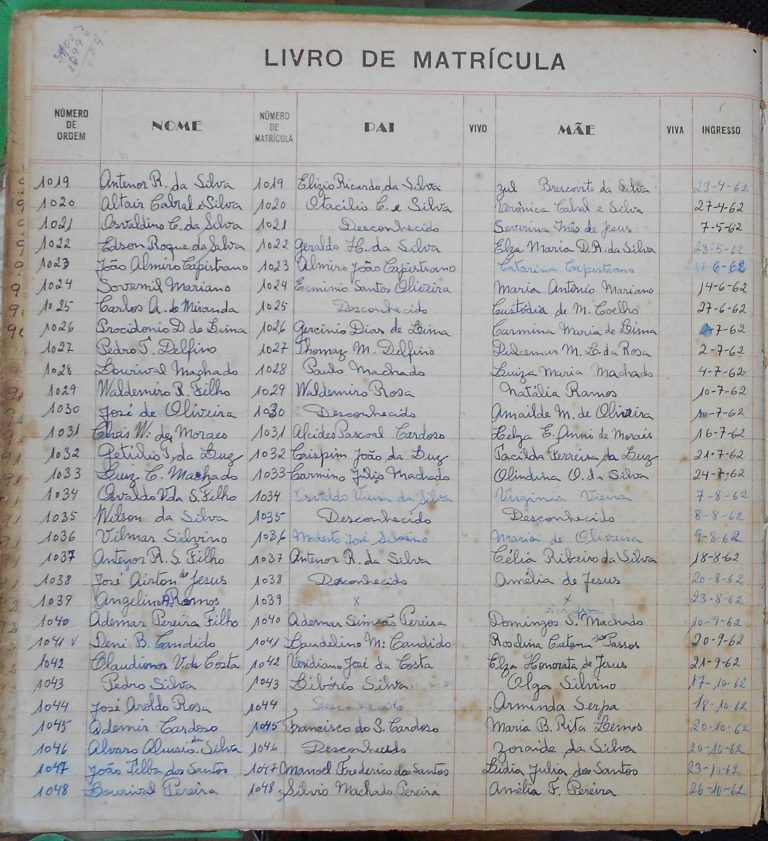 LIVRO DE MATRÍCULA
NÚMERO DE ORDEM NOME NÚMERO DE MATRÍCULA PAI VIVO MÃE VIVA INGRESSO
1019 Antenor R. da Silva 1019 Elizio Ricardo da Silva da Silva 23-4-62
1020 Altair Cabral e Silva 1020 Otacilio C. e Silva Verônica Cabral e Silva 27-4-62
1021 Osvaldino C. da Silva 1021 Desconhecido Severina Inês de Jesus 7-5-62
1022 Edson Roque da Silva 1022 Geraldo H. da Silva Elza Maria D.R. da Silva 28-5-62
1023 João Almiro Capistrano 1023 Almiro João Capistrano Catarina Capistrano 6-62
1024 Mariano 1024 Erminio Santos Oliveira Maria Antônio Mariano 14-6-62
1025 Carlos A. de Miranda 1025 Desconhecido Custódia de M. Coelho 27-6-62
1026 Procidonio D de Lima 1026 Gercinio Dias de Lima Carmina Maria de Lima 7-62
1027 Pedro T. Delfino 1027 Thomaz M. Delfino M. L. da Rosa 2-7-62
1028 Lourival Machado 1028 Paulo Machado Luiza Maria Machado 4-7-62
1029 Waldemiro R. Filho 1029 Waldemiro Rosa Natália Ramos 10-7-62
1030 José de Oliveira 1030 Desconhecido Amailde M. de Oliveira 10-7-62
1031 W. de Moraes 1031 Alcides Pascoal Cardoso E. de Morais 16-7-62
1032 Getúlio F. da Luz 1032 Crispim João da Luz Ferreira da Luz 21-7-62
1033 Luiz C. Machado 1033 Carmino Machado Olindina O. da Silva 24-7-62
1034 Osvaldo V. da S. Filho 1034 Osvaldo Vieira da Silva Virginia Vieira 7-8-62
1035 Wilson da Silva 1035 Desconhecido Desconhecido 8-8-62
1036 Vilmar Silvino 1036 Modesto José Silvino Maria de Oliveira 9-8-62
1037 Antenor R. S. Filho 1037 Antenor R. da Silva Célia Ribeiro da Silva 18-8-62
1038 José Airton de Jesus 1038 Desconhecido Amélia de Jesus 20-8-62
1039 Angelino Ramos 1039 x x 23-8-62
1040 Ademar Pereira Filho 1040 Ademar Simão Pereira Domingos S. Machado 10-9-62
1041 v Deni B. Candido 1041 Laudelino M. Candido Roselina Caetana dos Passos 20-9-62
1042 Claudionor V. da Costa 1042 Veridiano José da Costa Elza Honorata de Jesus 21-9-62
1043 Pedro Silva 1043 Libório Silva Olga Silvino 17-10-62
1044 José Aroldo Rosa 1044 Desconhecido Arminda Serpa 18-10-62
1045 Ademir Cardoso 1045 Francisco do S. Cardoso Maria B. Rita Lemos 20-10-62
1046 Alvaro Aluisio da Silva 1046 Desconhecido Zoraide da Silva 20-10-62
1047 João Telba dos Santos 1047 Manoel Frederico dos Santos Lídia Julia dos Santos 23-10-62
1048 Lourival Pereira 1048 Silvio Machado Pereira Amélia F. Pereira 26-10-62